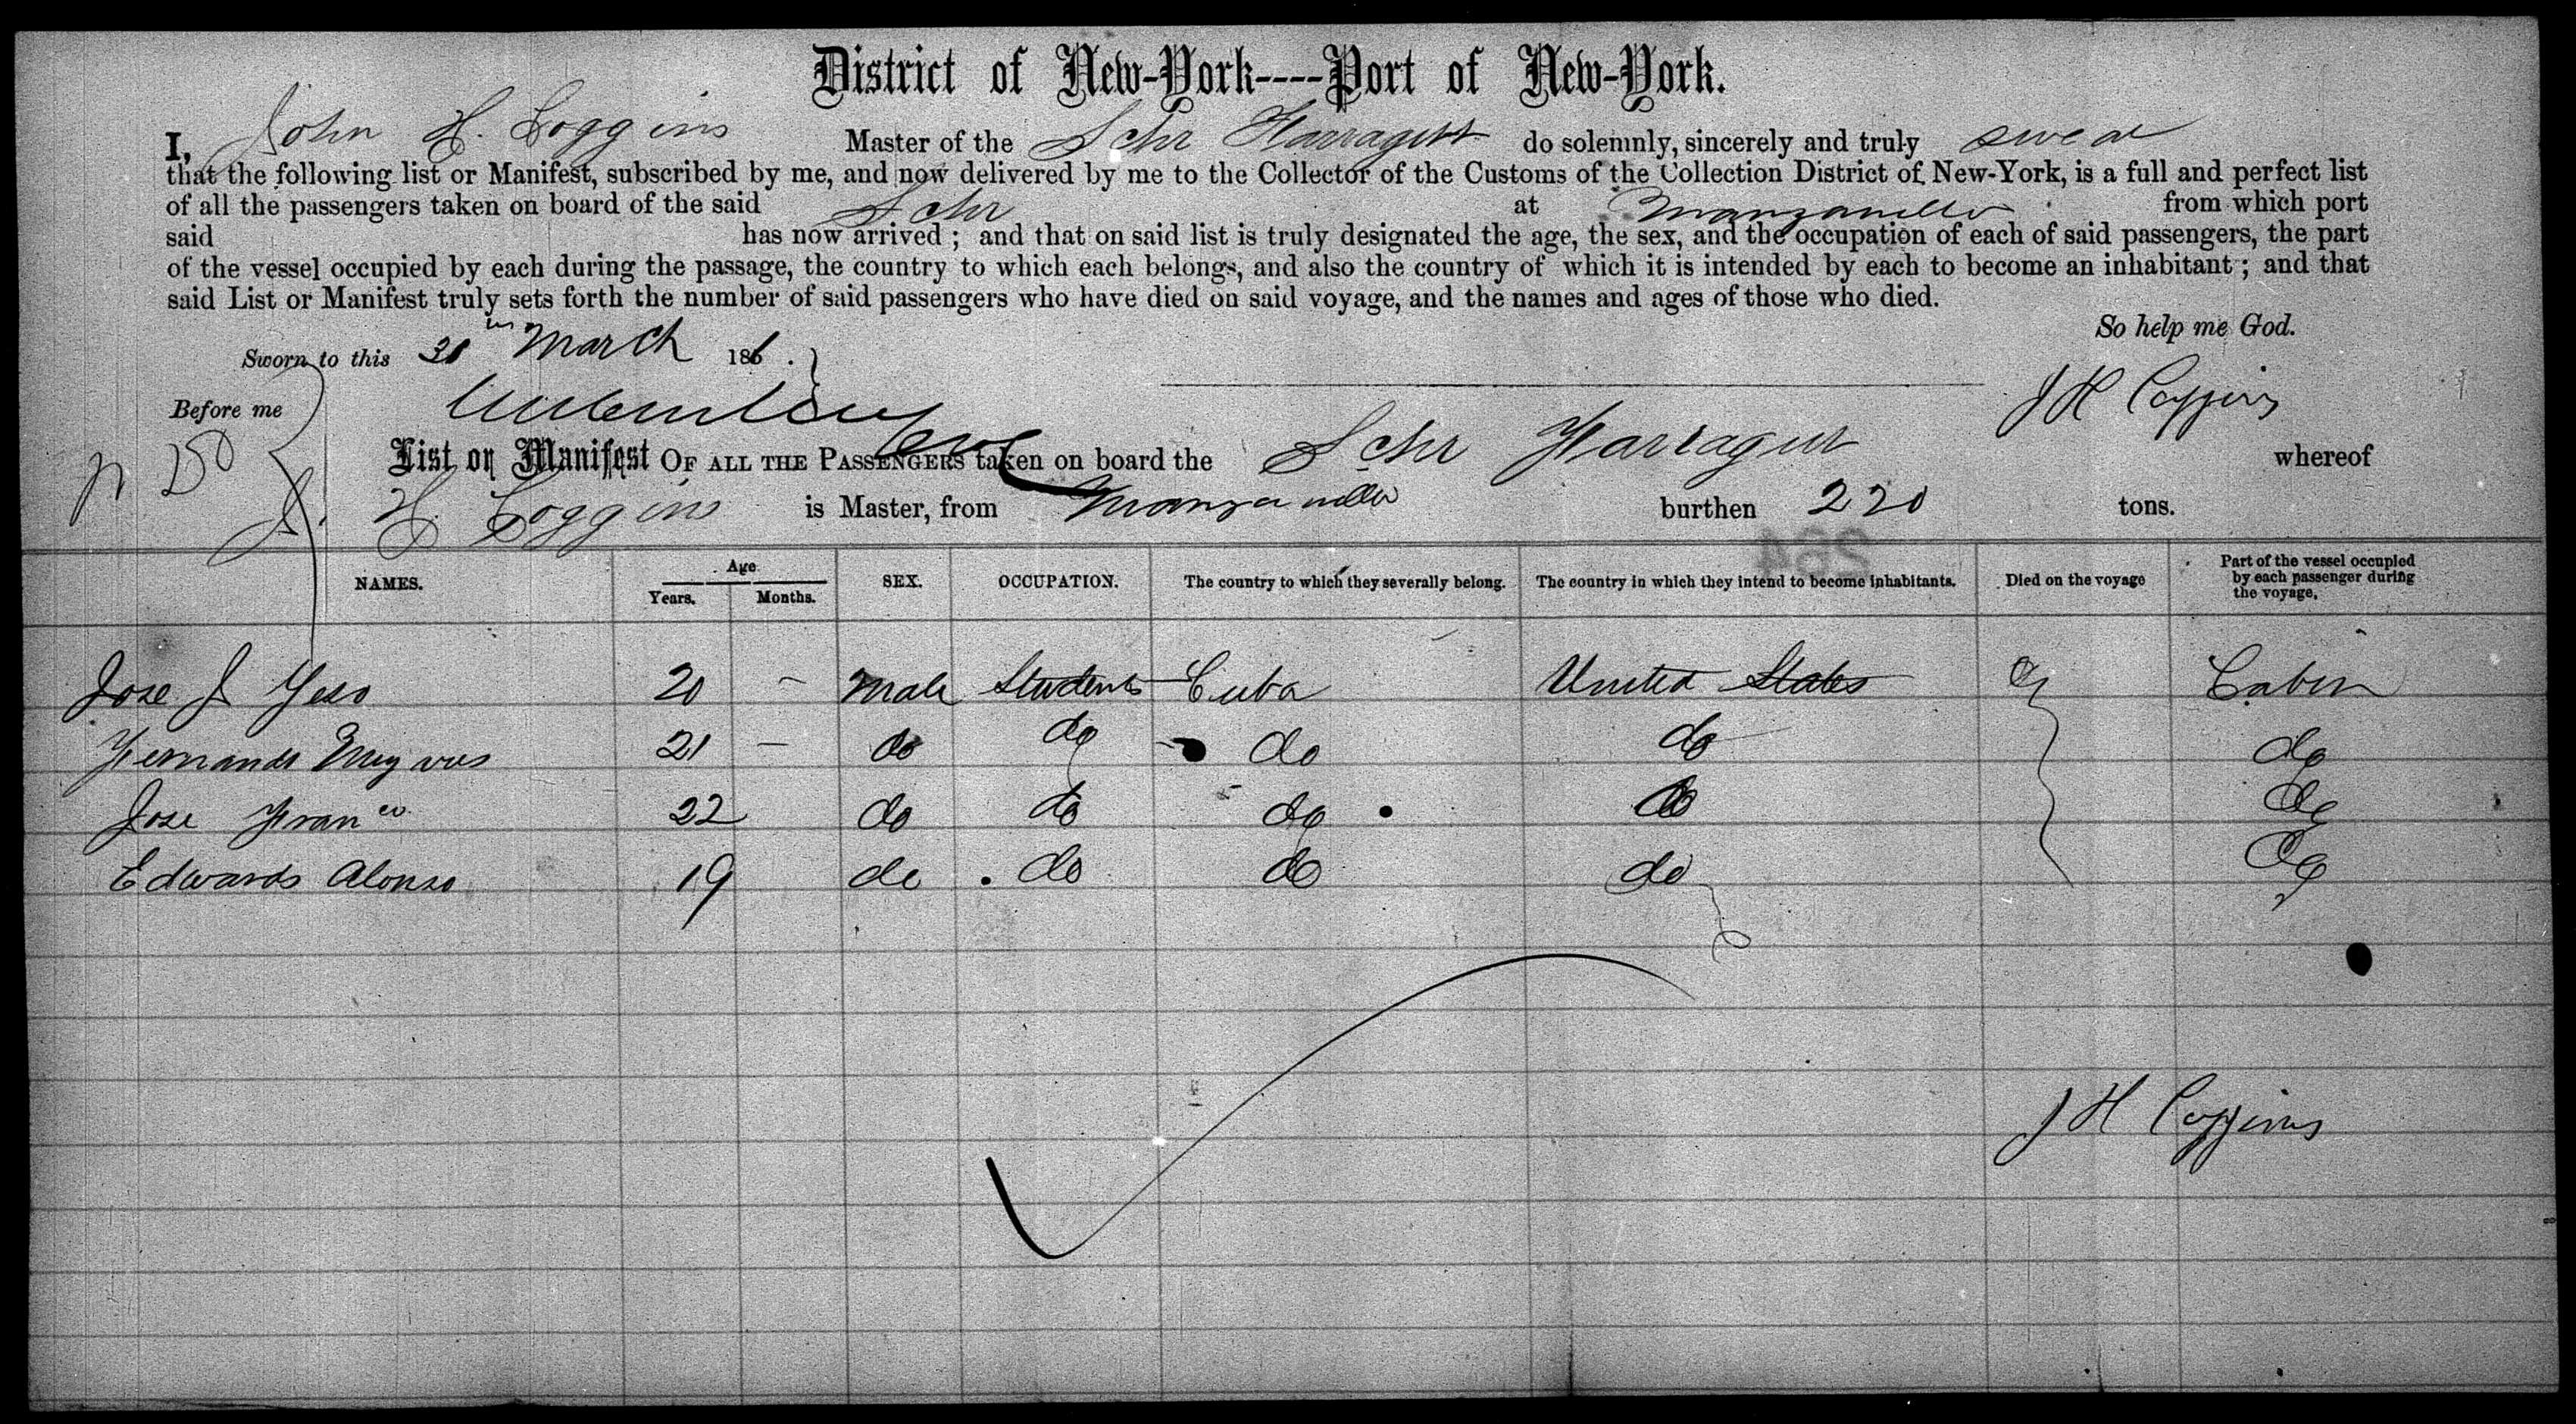 District of New-York----Port of New-York.
I, John H. Coggins Master of the Schr Farragut do solemnly, sincerely and truly swear
that the following list or Manifest, subscribed by me, and now delivered by me to the Collector of the Customs of the Collection District of New-York, is a full and perfect list
of all the passengers taken on board of the said Schr at Manzanillo from which port
said has now arrived ; and that on said list is truly designated the age, the sex, and the occupation of each of said passengers, the part
of the vessel occupied by each during the passage, the country to which each belongs, and also the country of which it is intended by each to become an inhabitant ; and that
said List or Manifest truly sets forth the number of said passengers who have died on said voyage, and the names and ages of those who died.
So help me God.
Sworn to this 31 March 186 .
J H Coggins
Before me
List or Manifest OF ALL THE PASSENGERS taken on board the Schr Farragut whereof
J. H. Coggins is Master, from Manzanillo burthen 220 tons.
264
NAMES. Age Years. Months. SEX. OCCUPATION. The country to which they severally belong. The country in which they intend to become inhabitants. Died on the voyage Part of the vessel occupied by each passenger during the voyage.
Jose J Yero 20 - Male Students Cuba United States Cabin
Fernando 21 - do do do do do
Jose Franco 22 do do do do do
Edwardo Alonso 19 do do do do do
J H Coggins